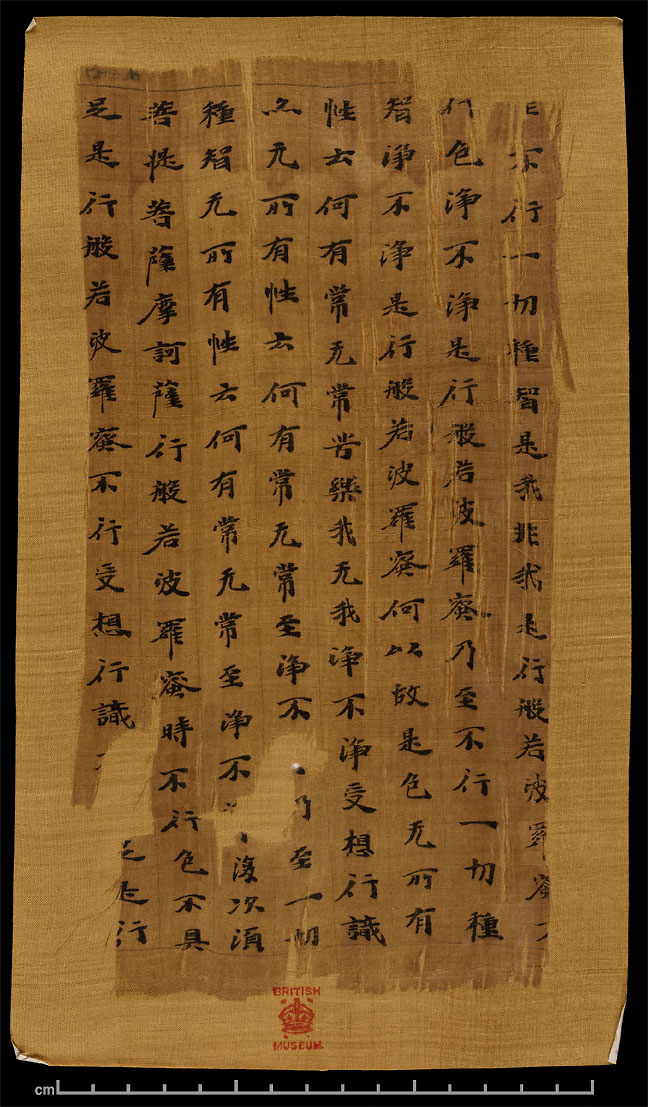 不行一切種智是我非我是行般若波羅蜜不
行色淨不淨是行般若波羅蜜乃至不行一切種
智淨不淨是行般若波羅蜜何以故是色无所有
性云何有常无常苦樂我无我淨不淨受想行識
亦无所有性云何有常无常至淨不 乃至一切
種智无所有性云何有常无常至淨不 復次須
菩提菩薩摩訶薩行般若波羅蜜時不行色不具
足是行般若波羅蜜不行受想行識 足是行
BRITISH
MUSEUM
cm